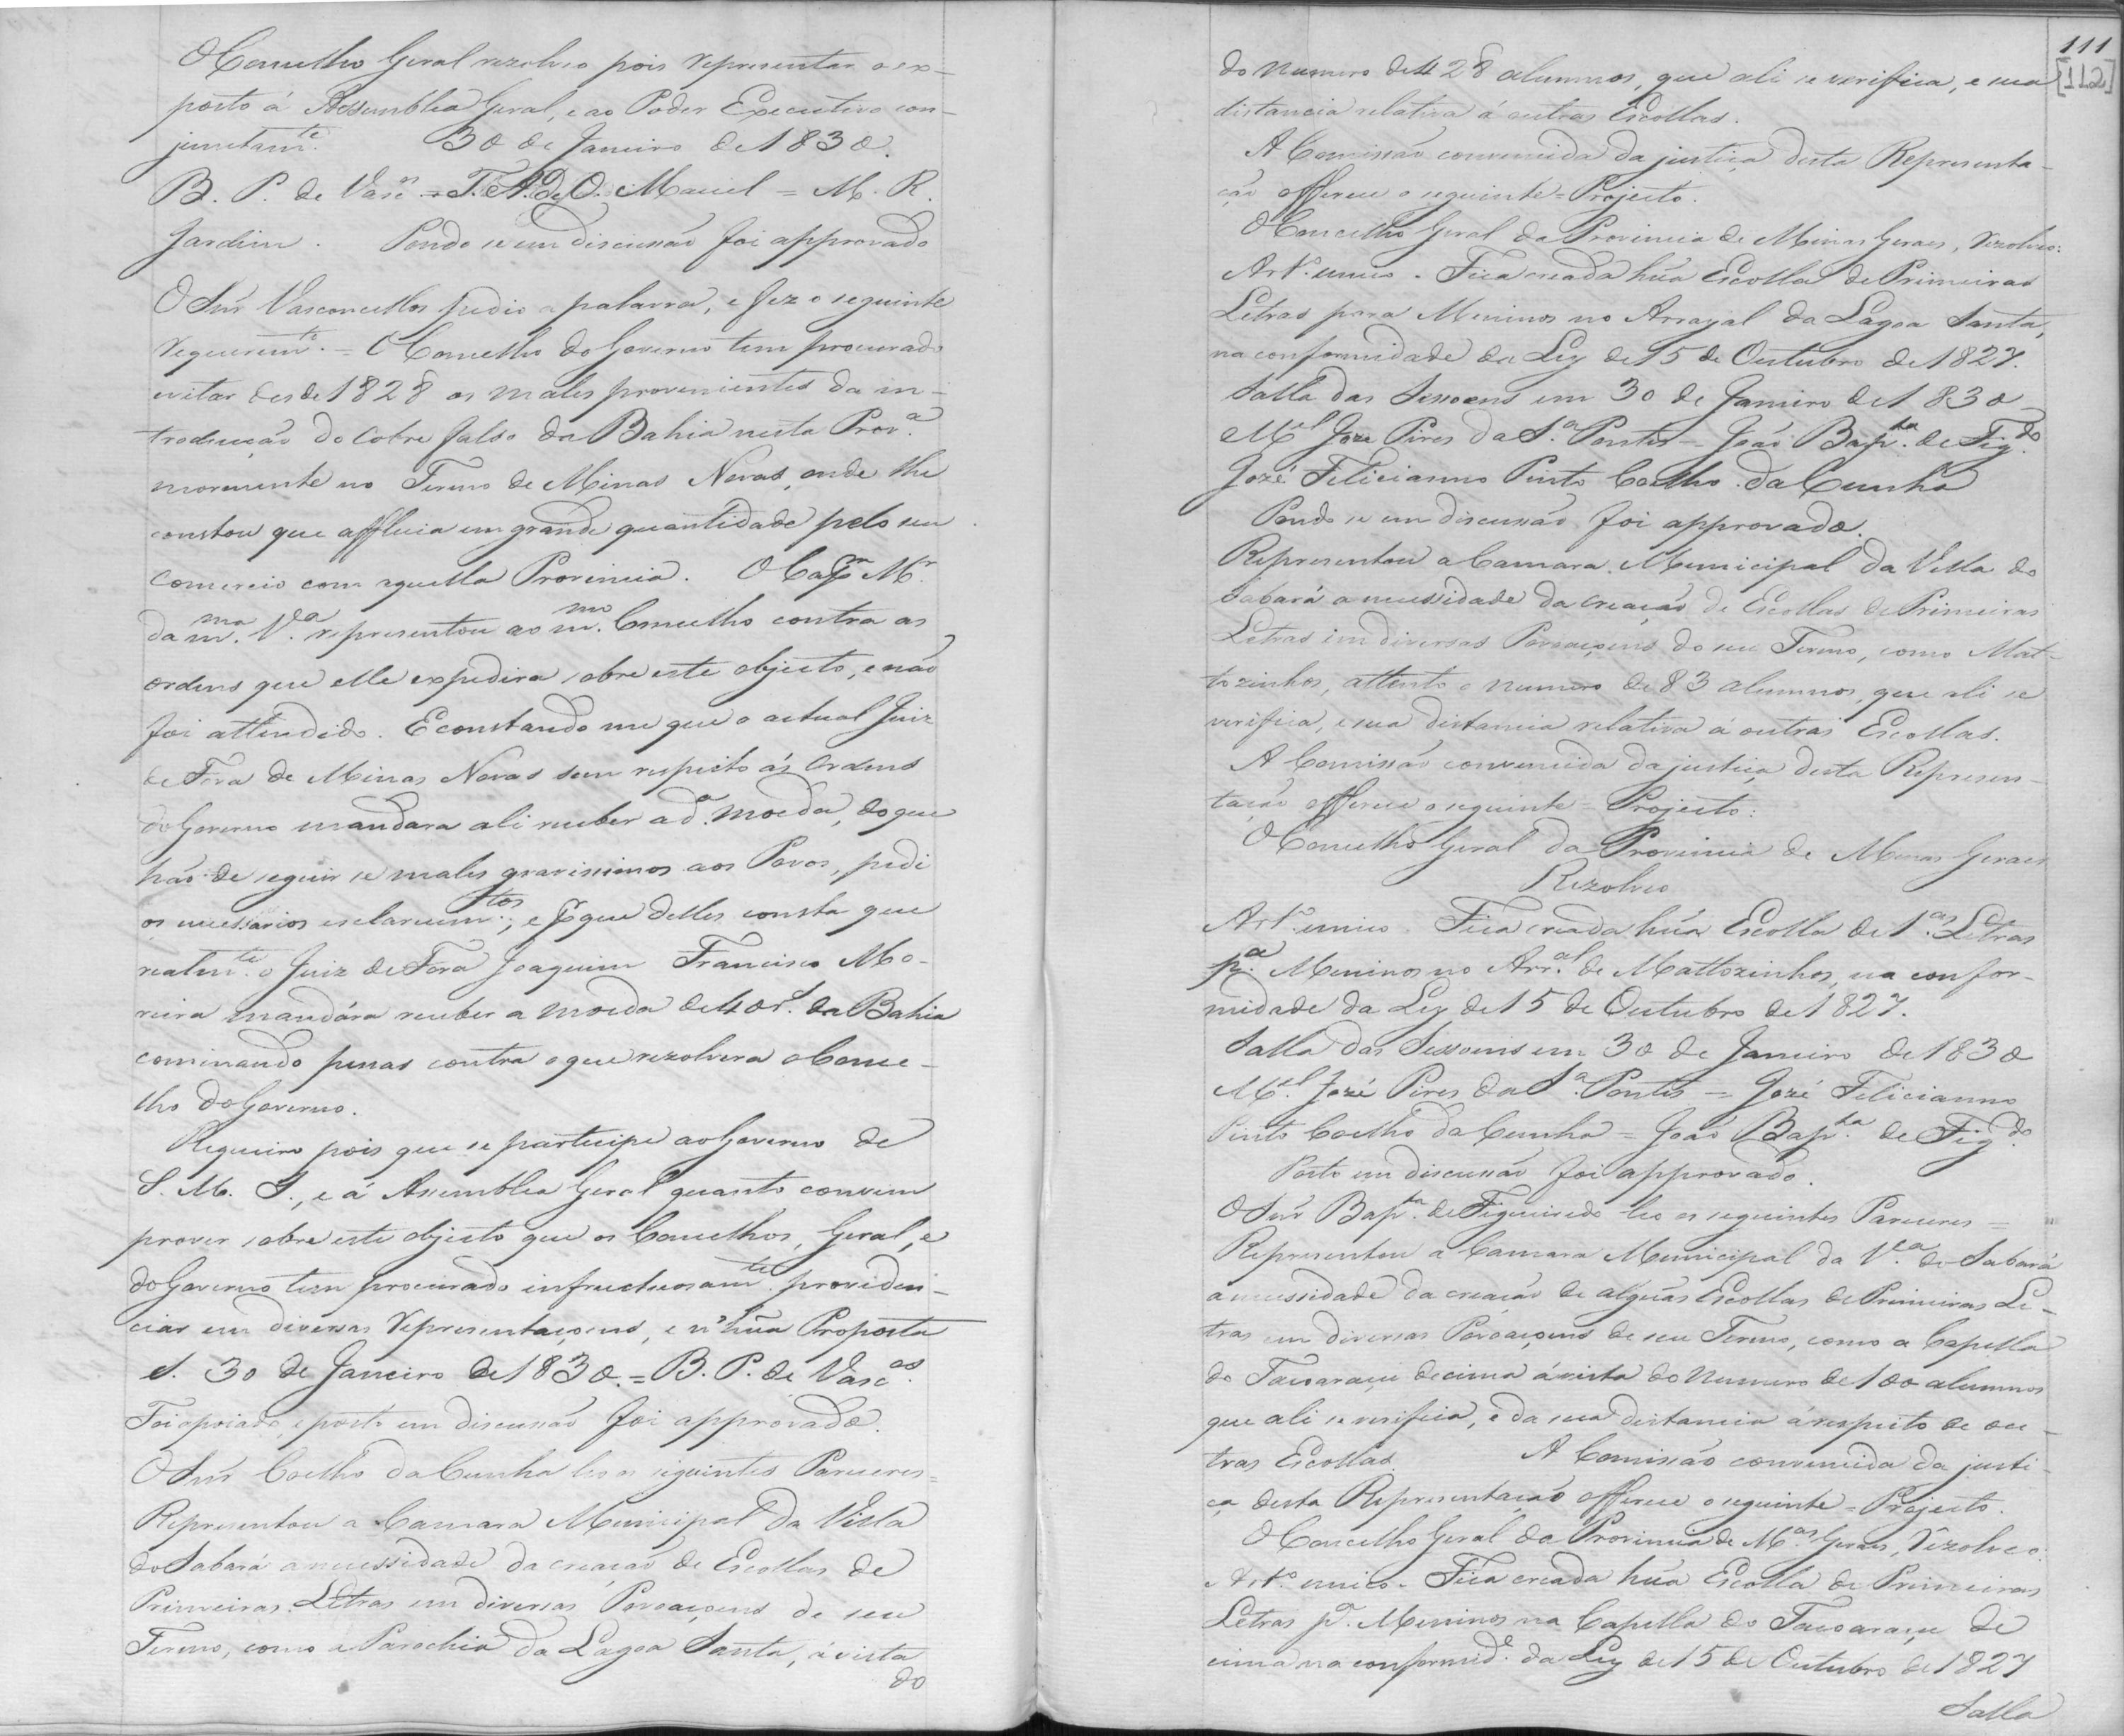 O Concelho Geral rezolveo pois representar o ex-
posto á Assemblea Geral, e ao Poder Executivo con-
junctam.te 30 de Janeiro de 1830.
B. P. de Vasc.os = T. A. de O. Maciel = M. R.
Jardim. Pondo se em discussão foi approvado
O Snr Vasconcellos pedio a palavra, e fez o seguinte
requerem.te = O Concelho do Governo tem procurado
evitar desde 1828 os males provenientes da in-
troducção do Cobre falso da Bahia nesta Prov.a
mormente no Termo de Minas Novas, onde lhe
constou que affluia em grande quantidade pelo seu
Comercio com aquella Provincia. O Cap.m M.r
da m.ma V.a representou ao m.mo Concelho contra as
ordens que elle expedira sobre este objecto, e não
foi attendido. E constando me que o actual Juiz
de Fora de Minas Novas sem respeito ás Ordens
do Governo mandara ali receber a d.a moeda, do que
hão de seguir se males gravissimos aos Povos, pedi
os necessarios esclarecim.tos; e p.r que delles consta que
realm.te o Juiz de Fora Joaquim Francisco Mo-
reira mandára receber a moeda de 40 r.s da Bahia
cominando penas contra o que rezolvera o Conce-
lho do Governo.
Requeiro pois que se participe ao Governo de
S. M. I., e á Assemblea Geral quanto convem
prover sobre este objecto que os Concelhos, Geral, e
do Governo tem procurado infructuosam.te providen-
ciar em diversas representaçoens, e n'hũa Proposta
S. 30 de Janeiro de 1830. = B. P. de Vasc.os
Foi apoiado, e posto em discussão foi approvado.
O Snr Coelho da Cunha leo os seguintes Pareceres =
Representou a Camara Municipal da Villa
do Sabará a necessidade da creação de Escollas de
Primeiras Letras em diversas Povoaçoens de seu
Termo, como a Parochia da Lagoa Santa, á vista
do
111
[112]
do numero de 428 alumnos, que ali se verifica, e sua
distancia relativa á outras Escollas.
A Comissão convencida da justiça desta Representa-
ção offerece o seguinte = Projecto.
O Concelho Geral da Provincia de Minas Geraes, rezolveo:
Art.o unico. Fica creada hũa Escolla de Primeiras
Letras para Meninos no Arrayal da Lagoa Santa,
na conformidade da Ley de 15 de Outubro de 1827.
Salla das Sessoens em 30 de Janeiro de 1830
M.el Joze Pires da S.a Pontes = João Bap.ta de Fig.do
Jozé Felicianno Pinto Coelho da Cunha
Pondo se em discussão foi approvado.
Representou a Camara Municipal da Villa do
Sabará a necessidade da creação de Escollas de Primeiras
Letras em diversas Povoaçoens do seu Termo, como Mat-
tozinhos, attento o numero de 83 alumnos, que ali se
verifica, e sua distancia relativa á outras Escollas.
A Comissão convencida da justiça desta Represen-
tação offerece o seguinte = Projecto:
O Concelho Geral da Provincia de Minas Geraes
Rezolveo
Art.o unico. Fica creada hũa Escolla de 1.as Letras
p.a Meninos no Arr.al de Mattozinhos, na confor-
midade da Ley de 15 de Outubro de 1827.
Salla das Sessoens em 30 de Janeiro de 1830
M.el Jozé Pires da S.a Pontes = Jozé Felicianno
Pinto Coelho da Cunha = João Bap.ta de Fig.do
Posto em discussão foi approvado.
O Snr Bap.ta de Figueiredo leo os seguintes Pareceres =
Representou a Camara Municipal da V.a do Sabará
a necessidade da creação de algũas Escollas de Primeiras Le-
tras em diversas Povoaçoens de seu Termo, como a Capella
do Tacoaraçu de cima á vista do numero de 100 alumnos
que ali se verifica, e da sua distancia á respeito de ou-
tras Escollas. A Comissão convencida da justi-
ça desta Representação offerece o seguinte = Projecto.
O Concelho Geral da Provincia de M.as Geraes, rezolveo:
Art.o unico. Fica creada hũa Escolla de Primeiras
Letras p.a Meninos na Capella do Tacoaraçu de
cima na conformid.e da Ley de 15 de Outubro de 1827
Salla